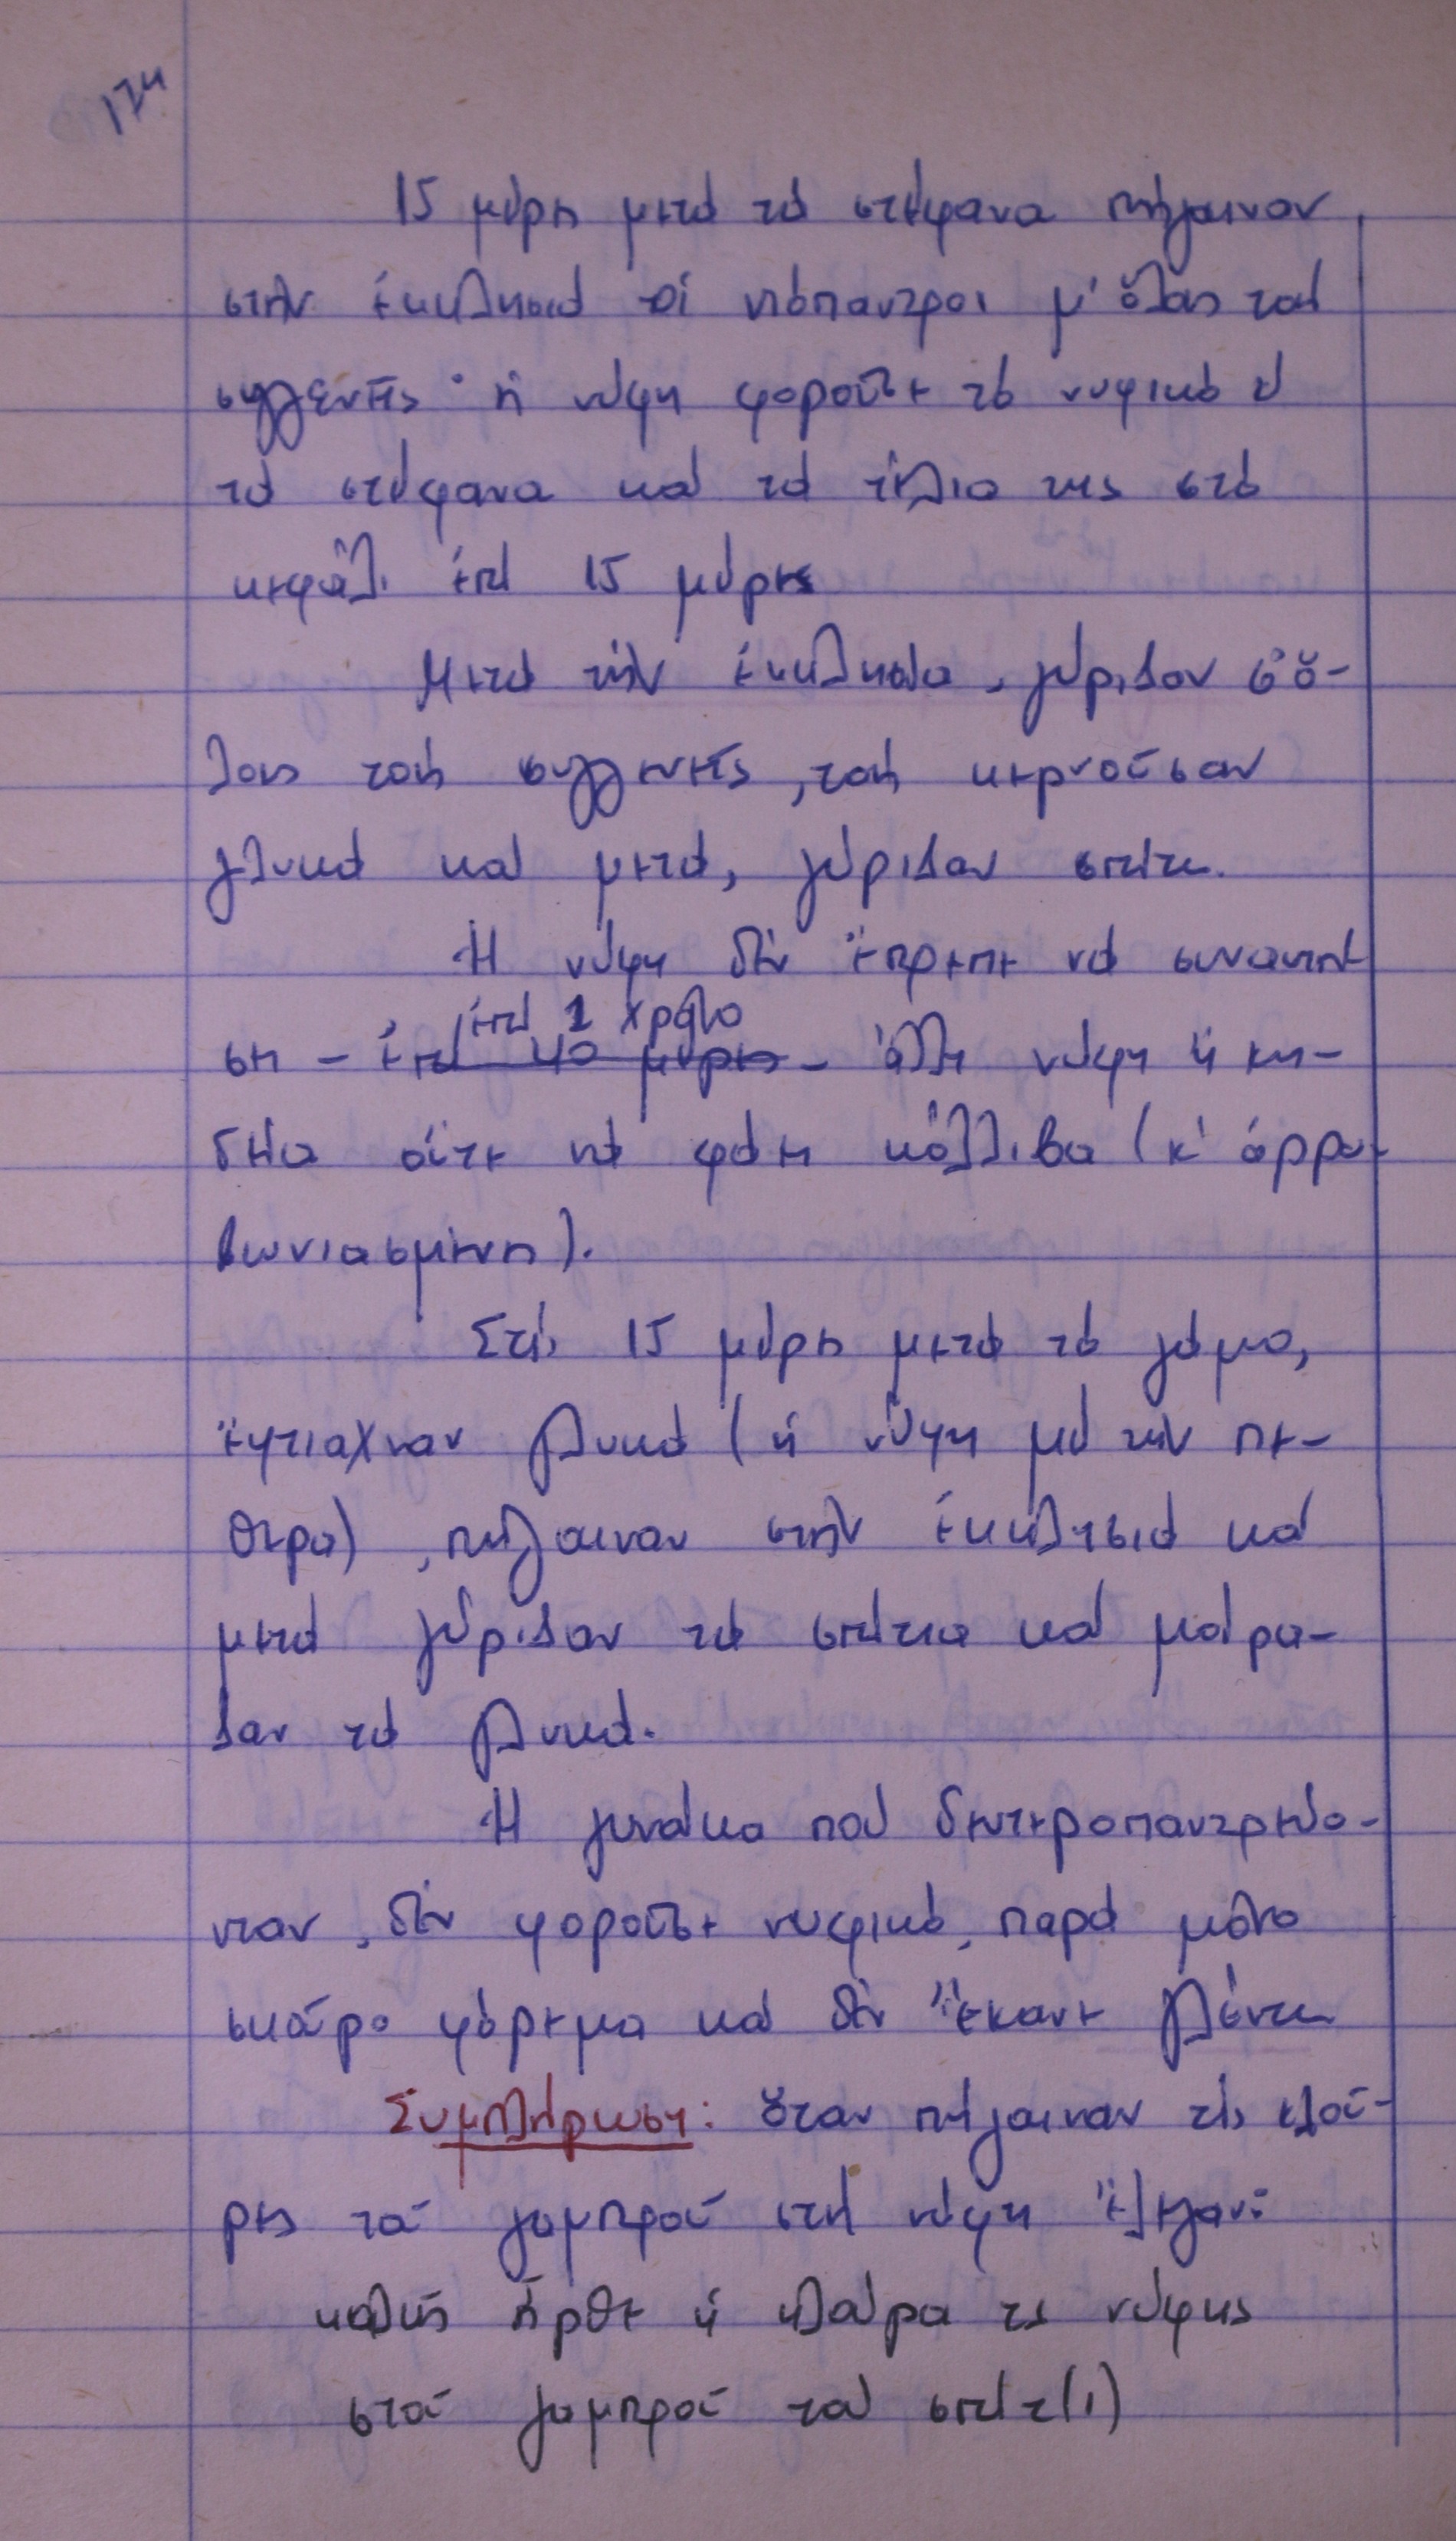 174
15 μέρες μετά τά στέφανα πήγαιναν
στήν ἐκκλησιά οἱ νιόπαντροι μ' ὅλους τούς
συγγενεῖς· ἡ νύφη φοροῦσε τό νυφικό
τά στέφανα καί τά τέλια της στό
κεφάλι ἐπί 15 μέρες
Μετά τήν ἐκκλησία, γύριζαν σ' ὅ-
λους τούς συγγενεῖς, τούς κερνοῦσαν
γλυκά καί μετά, γύριζαν σπίτι.
Ἡ νύφη δέν ἔπρεπε νά συναντή
ἐπί 1 χρόνο
σει - ἐπί 40 μέρες - ἄλλη νύφη ἤ κη-
δεία οὔτε νά φάει κόλλιβα (κ' ἀρρα-
βωνιασμένη).
Στίς 15 μέρες μετά τό γάμο,
ἔφτιαχναν γλυκά (ἡ νύφη μέ τήν πε-
θερά), πήγαιναν στήν ἐκκλησιά καί
μετά γύριζαν τά σπίτια καί μοίρα-
ζαν τά γλυκά.
Ἡ γυναίκα πού δευτεροπαντρευό-
νταν, δέν φοροῦσε νυφικό, παρά μόνο
σκοῦρο φόρεμα καί δέν ἔκανε γλέντι
Συμπλήρωση: ὅταν πήγαιναν τίς κλοῦ-
ρες τοῦ γαμπροῦ στή νύφη ἔλεγαν:
καλῶς ἦρθε ἡ κλούρα τς νύφης
στοῦ γαμπροῦ τού σπίτ(ι)